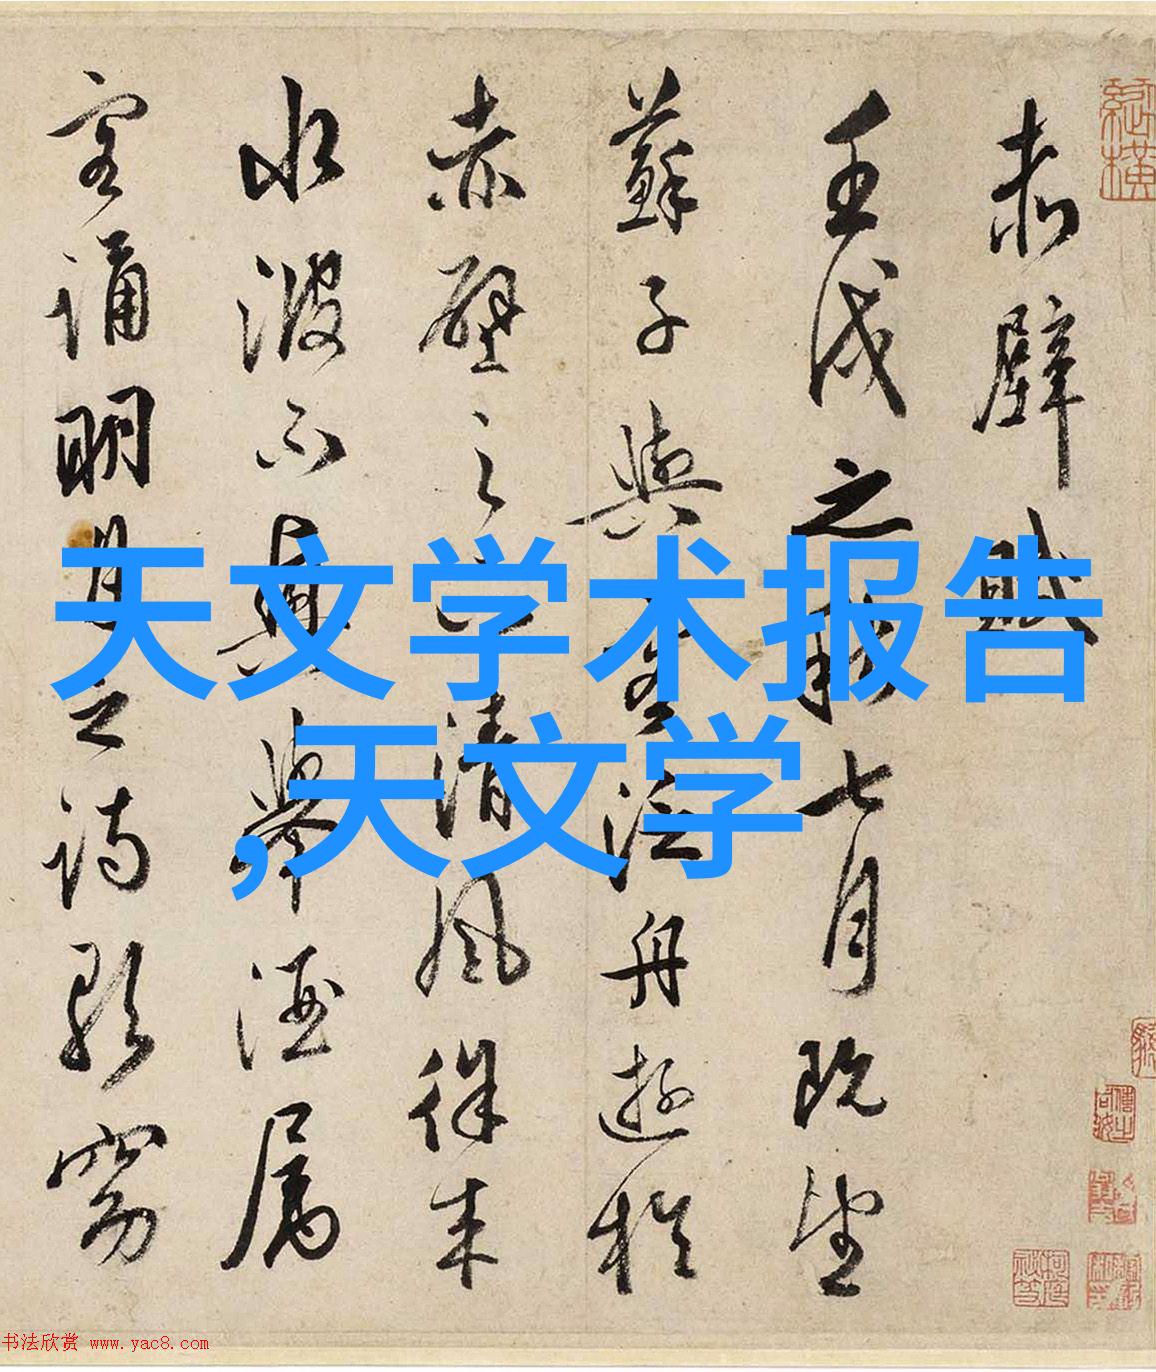 赤壁賦
壬戌之秋七月既望
蘇子與客泛舟遊於
赤壁之下清風徐来
水波不興舉酒属
客誦明月之詩歌窈
天文学术报告
,天文学
书法欣赏 www.yac8.com